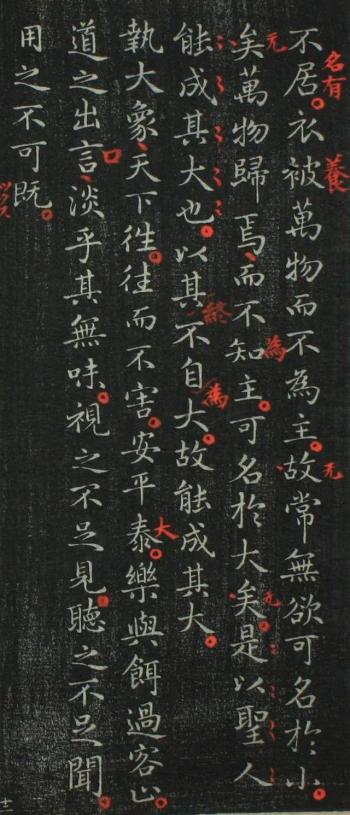 不居衣被萬物而不為主故常無欲可名於小
矣萬物歸焉而不知主可名於大矣是以聖人
能成其大也以其不自大故能成其大
執大象天下往往而不害安平泰樂與餌過客止
道之出言淡乎其無味視之不足見聽之不足聞
用之不可既
名有
養
无
元
為
終
為
无
大
口
十二